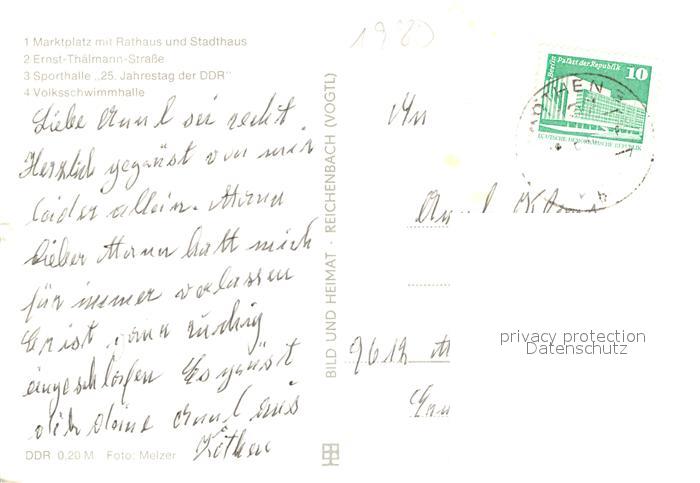 1 Marktplatz mit Rathaus und Stadthaus
2 Ernst-Thälmann-Straße
3 Sporthalle „25. Jahrestag der DDR"
4 Volksschwimmhalle
Liebe sei recht
Herzlich gegrüst von mir
leider allein. Mann
lieber Mann hatt mich
für immer verlassen
Er ist ruhig
eingeschlafen Es grüsst
dich deine aus
Köthen
DDR 0,20 M Foto: Melzer
BILD UND HEIMAT · REICHENBACH (VOGTL)
1980
Berlin Palast der Republik
10
DEUTSCHE DEMOKRATISCHE REPUBLIK
An
9612
privacy protection
Datenschutz